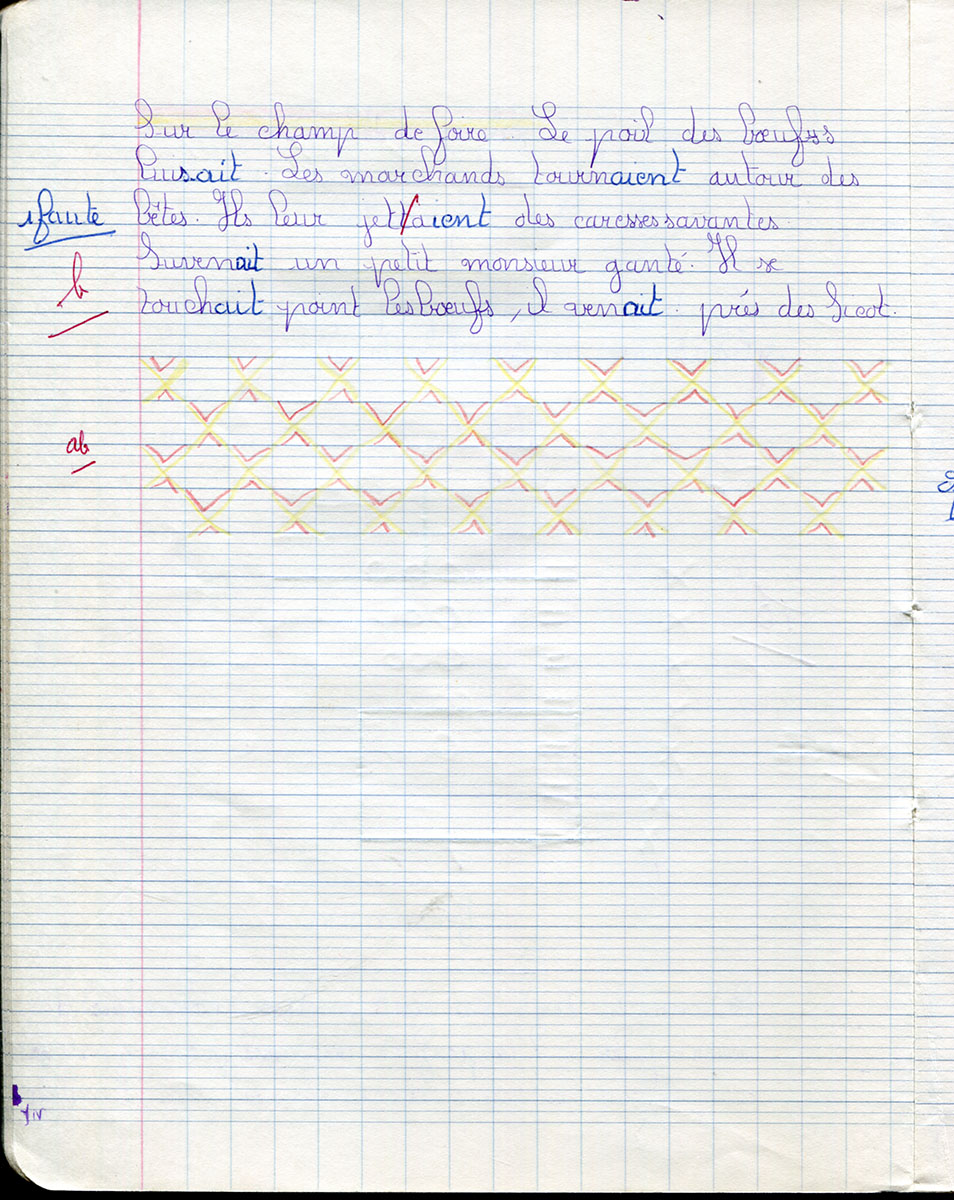 Sur le champ de foire. Le poil des bœufs
luisait. Les marchands tournaient autour des
1 faute bêtes. Ils leur jettaient des caresses savantes.
b Survenait un petit monsieur ganté. Il se
touchait point les bœufs, il venait. près des Sicot.
ab